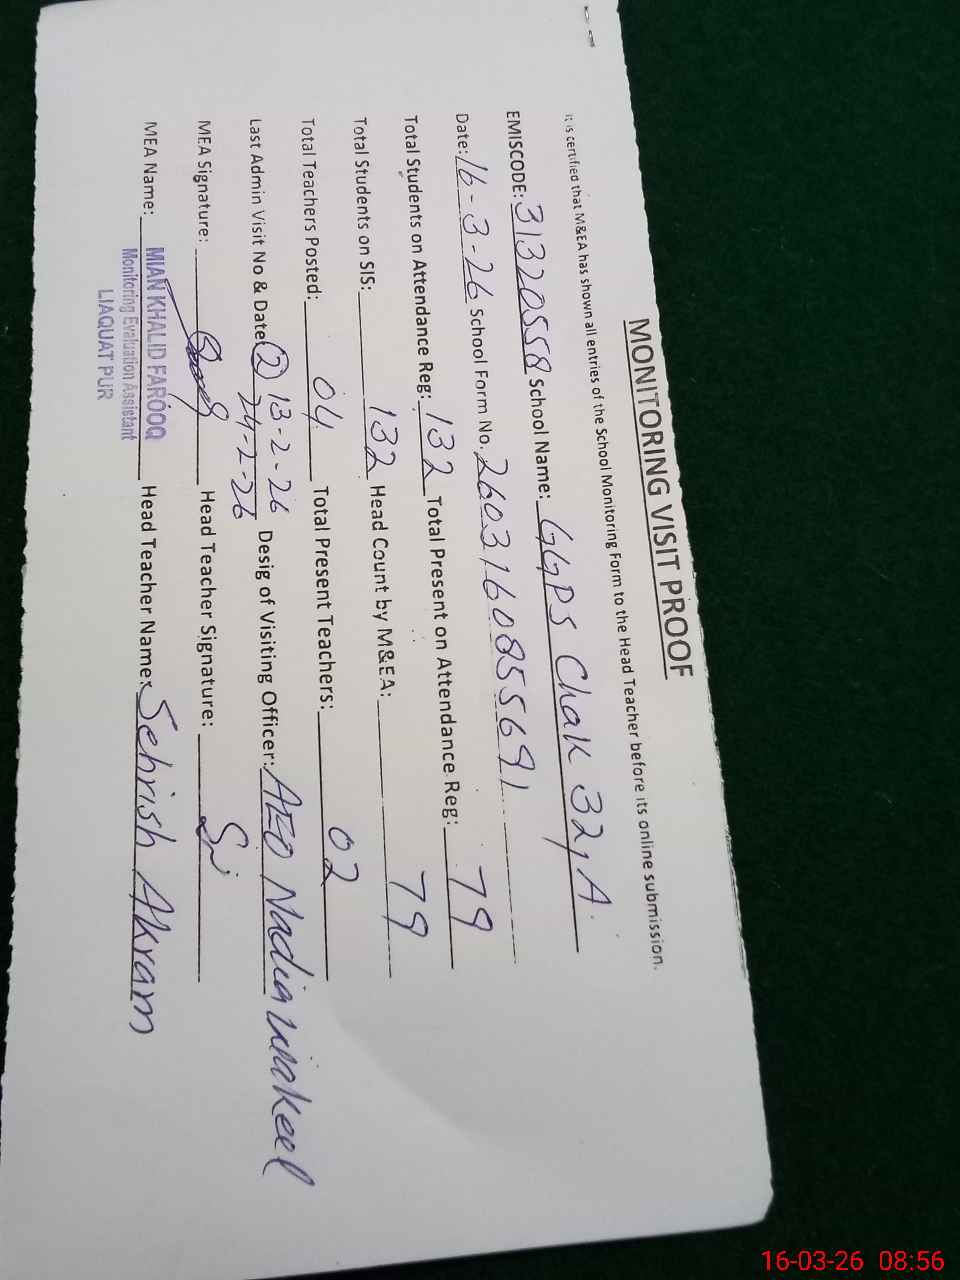 MONITORING VISIT PROOF
It is certified that M&EA has shown all entries of the School Monitoring Form to the Head Teacher before its online submission.
EMISCODE: 31320558 School Name: GGPS Chak 32/A
Date: 16-3-26 School Form No. 2603160855691
Total Students on Attendance Reg: 132 Total Present on Attendance Reg: 79
Total Students on SIS: 132 Head Count by M&EA: 79
Total Teachers Posted: 04 Total Present Teachers: 02
Last Admin Visit No & Date: (2) 13-2-26 Desig of Visiting Officer: AEO Nadia wakeel
24-2-26
MEA Signature: Head Teacher Signature:
MEA Name: MIAN KHALID FAROOQ Head Teacher Name: Sehrish Akram
Monitoring Evaluation Assistant
LIAQUAT PUR
16-03-26 08:56